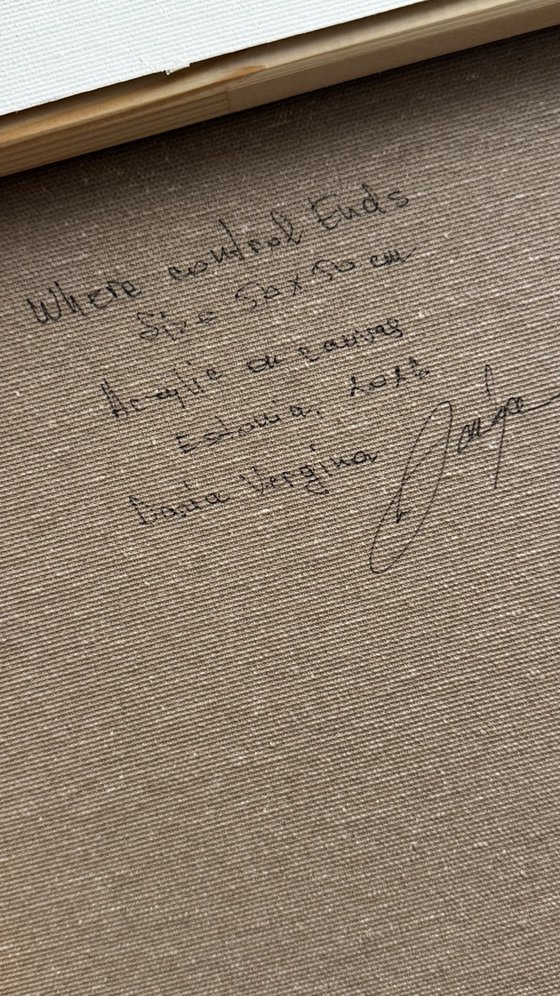 Where control Ends
Size 50 x 50 cm
Acrylic on canvas
Estonia,
Vergina